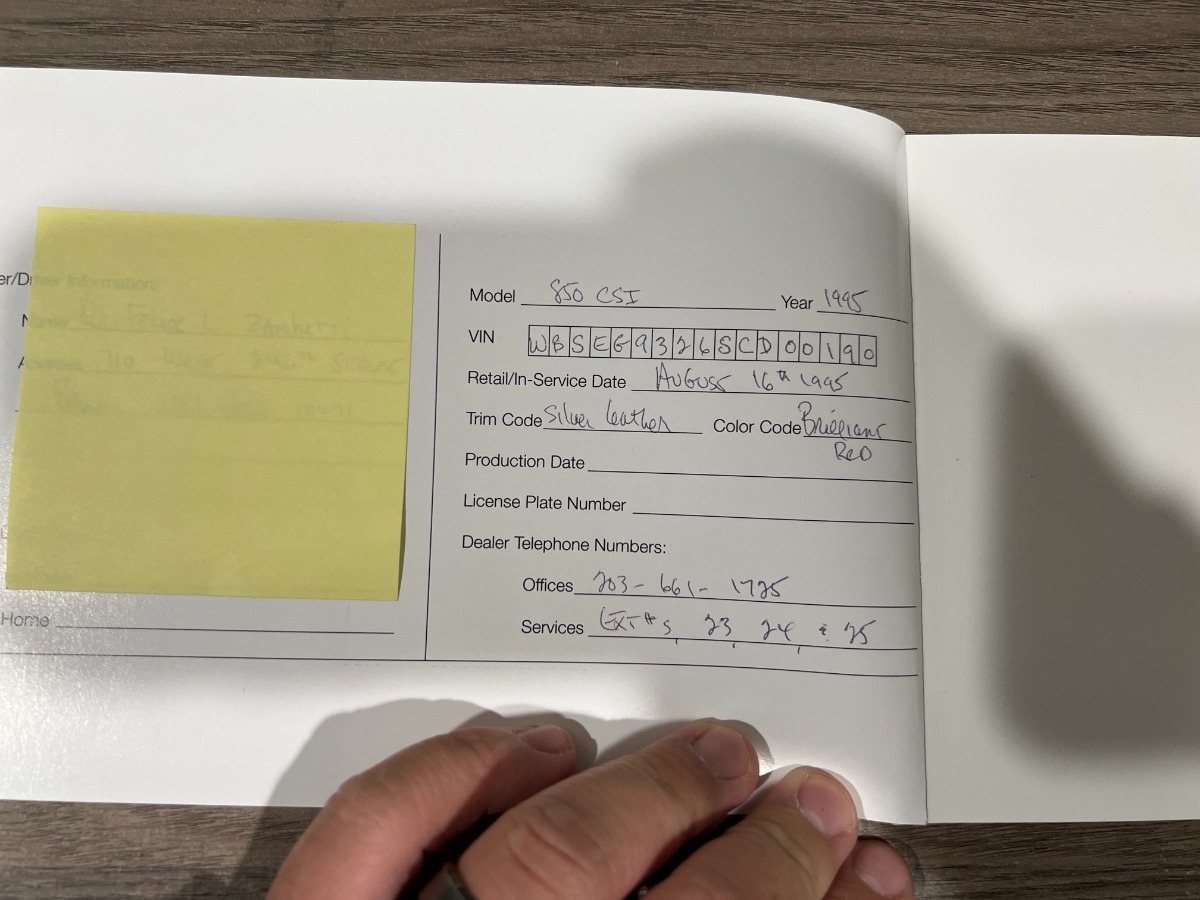 er/Driver Information:
Name
Home
Model 850 CSI Year 1995
VIN WBSEG9326SCD00190
Retail/In-Service Date August 16th 1995
Trim Code Silver leather Color Code Brilliant
Red
Production Date
License Plate Number
Dealer Telephone Numbers:
Offices 203-661-1725
Services EXT#s, 23, 24, & 25